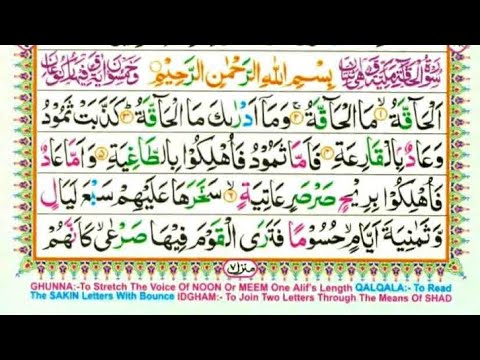 سُوْرَةُ الْحَآقَّةِ مَكِّيَّةٌ وَّهِيَ بِسْمِ اللهِ الرَّحْمٰنِ الرَّحِيْمِ وَخَمْسُوْنَ اٰيَةً وَّفِيْهَا رُكُوْعَانِ
اَلْحَآقَّةُ ۙ۝۱ مَا الْحَآقَّةُ ۚ۝۲ وَمَاۤ اَدْرٰىكَ مَا الْحَآقَّةُ ؕ۝۳ كَذَّبَتْ ثَمُوْدُ
وَعَادٌۢ بِالْقَارِعَةِ ۝۴ فَاَمَّا ثَمُوْدُ فَاُهْلِكُوْا بِالطَّاغِيَةِ ۝۵ وَاَمَّا عَادٌ
فَاُهْلِكُوْا بِرِيْحٍ صَرْصَرٍ عَاتِيَةٍ ۙ۝۶ سَخَّرَهَا عَلَيْهِمْ سَبْعَ لَيَالٍ
وَّثَمٰنِيَةَ اَيَّامٍ ۙ حُسُوْمًا فَتَرَى الْقَوْمَ فِيْهَا صَرْعٰى ۙ كَاَنَّهُمْ
منزل ۷
GHUNNA:-To Stretch The Voice Of NOON Or MEEM One Alif's Length QALQALA:- To Read
The SAKIN Letters With Bounce IDGHAM:- To Join Two Letters Through The Means Of SHAD